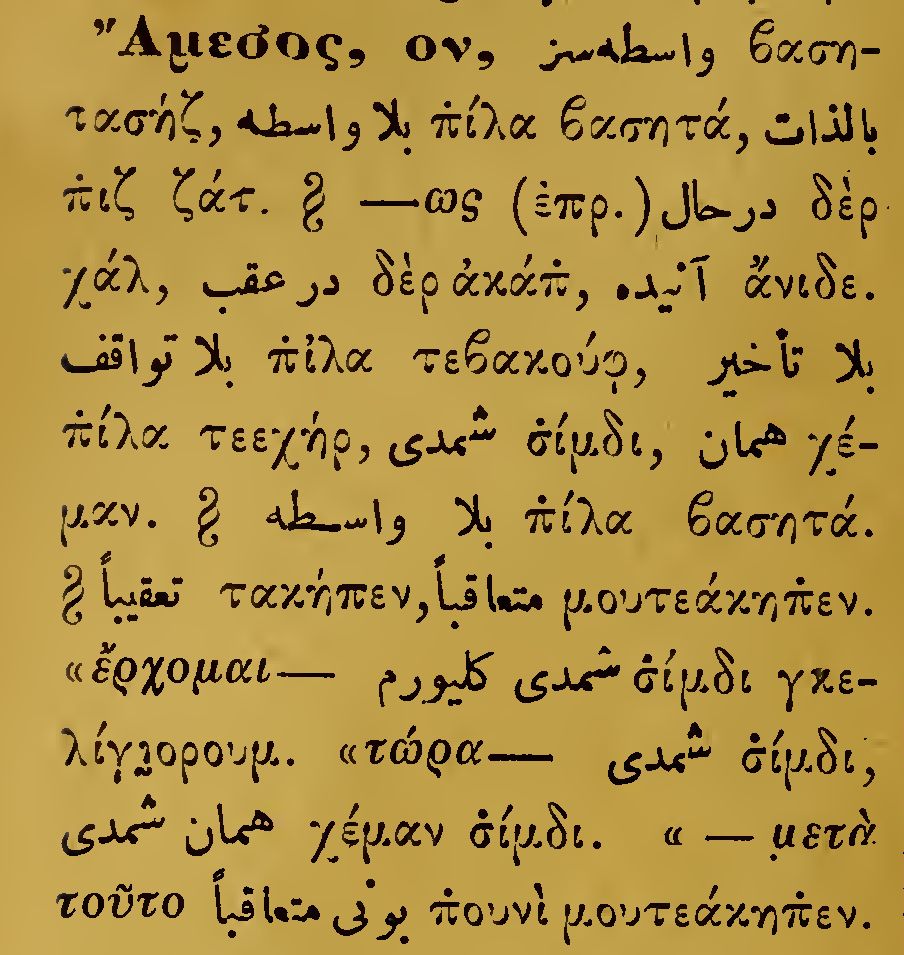 Ἄμεσος, ον, واسطه‌سز βαση-
τασήζ, بلا واسطه π̇ίλα βασητά, بالذات
π̇ιζ ζάτ. § —ως (ἐπρ.) درحال δὲρ
χάλ, در عقب δὲρ ἀκάπ̇, آنیده ἄνιδε.
بلا تواقف π̇ίλα τεβακούφ, بلا تأخیر
π̇ίλα τεεχήρ, شمدی σ̇ίμδι, همان χέ-
μαν. § بلا واسطه π̇ίλα βασητά.
§ تعقیباً τακήπεν, متعاقباً μουτεάκηπ̇εν.
«ἔρχομαι— شمدی کلیورم σ̇ίμδι γκε-
λίγιορουμ. «τώρα— شمدی σ̇ίμδι,
همان شمدی χέμαν σ̇ίμδι. « — μετὰ
τοῦτο بونی متعاقباً π̇ουνὶ μουτεάκηπ̇εν.